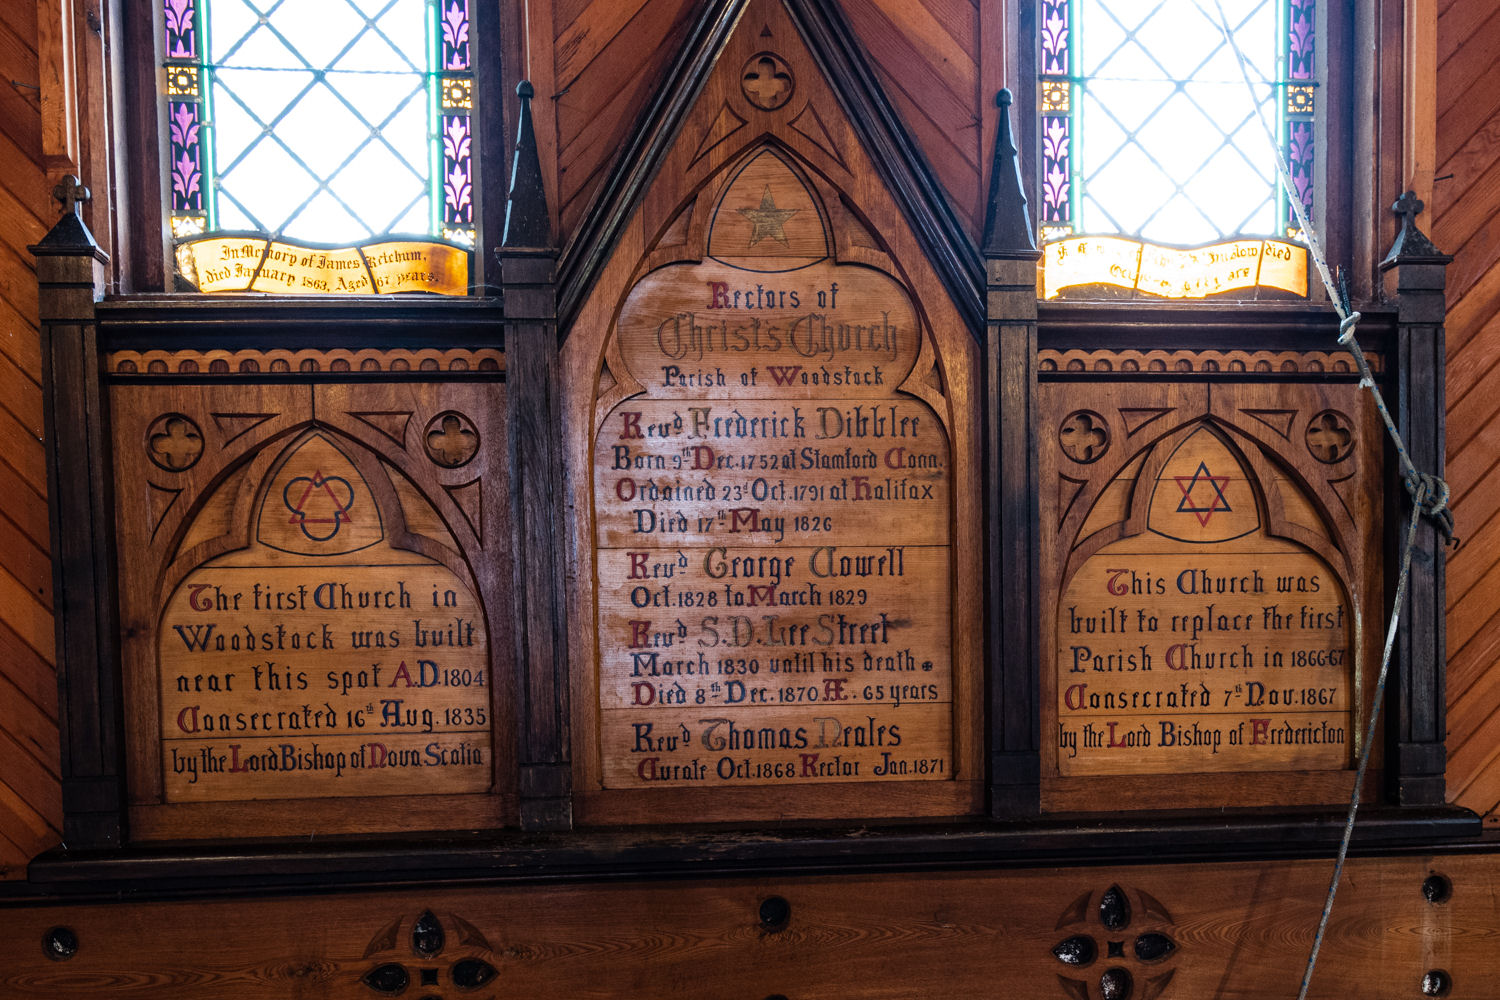 In Memory of James Ketchum,
died January 1863, Aged 67 years.
died
The first Church in
Woodstock was built
near this spot A.D. 1804
Consecrated 16th Aug. 1835
by the Lord Bishop of Nova Scotia
Rectors of
Christ's Church
Parish of Woodstock
Revd Frederick Dibblee
Born 9th Dec. 1752 at Stamford Conn.
Ordained 23d Oct. 1791 at Halifax
Died 17th May 1826
Revd George Cowell
Oct. 1828 to March 1829
Revd S.D. Lee Street
March 1830 until his death
Died 8th Dec. 1870 Æ. 65 years
Revd Thomas Neales
Curate Oct. 1868 Rector Jan. 1871
This Church was
built to replace the first
Parish Church in 1866-67
Consecrated 7th Nov. 1867
by the Lord Bishop of Fredericton